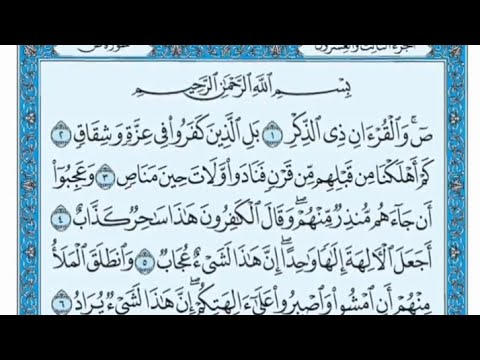 سورة ص
الجزء الثالث والعشرون
بِسْمِ اللَّهِ الرَّحْمَٰنِ الرَّحِيمِ
صٓ ۚ وَالْقُرْءَانِ ذِي الذِّكْرِ ١ بَلِ الَّذِينَ كَفَرُوا فِي عِزَّةٍ وَشِقَاقٍ ٢
كَمْ أَهْلَكْنَا مِن قَبْلِهِم مِّن قَرْنٍ فَنَادَوا وَّلَاتَ حِينَ مَنَاصٍ ٣ وَعَجِبُوٓا
أَن جَآءَهُم مُّنذِرٌ مِّنْهُمْ ۖ وَقَالَ الْكَٰفِرُونَ هَٰذَا سَٰحِرٌ كَذَّابٌ ٤
أَجَعَلَ الْءَالِهَةَ إِلَٰهًا وَٰحِدًا ۖ إِنَّ هَٰذَا لَشَيْءٌ عُجَابٌ ٥ وَانطَلَقَ الْمَلَأُ
مِنْهُمْ أَنِ امْشُوا وَاصْبِرُوا عَلَىٰٓ ءَالِهَتِكُمْ ۖ إِنَّ هَٰذَا لَشَيْءٌ يُرَادُ ٦